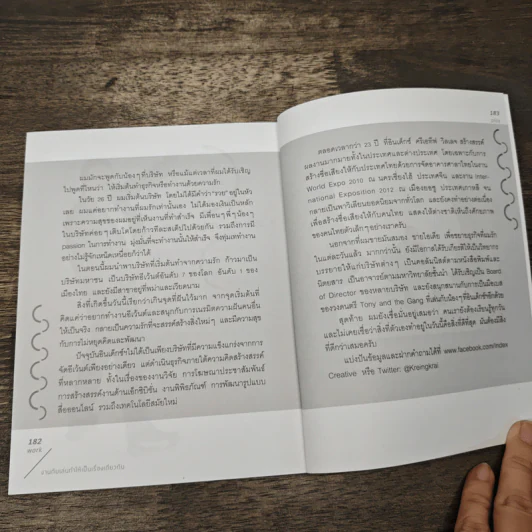 ผมมักจะพูดกับน้องๆ ที่บริษัท หรือแม้แต่เวลาที่ผมได้รับเชิญ
ไปพูดที่ไหนว่า ให้เริ่มต้นทำธุรกิจหรือทำงานด้วยความรัก
ในวัย 26 ปี ผมเริ่มต้นบริษัท โดยไม่ได้มีคำว่า "รวย" อยู่ในหัว
เลย ผมแค่อยากทำงานที่ผมรักเท่านั้นเอง ไม่ได้มองเงินเป็นหลัก
เพราะความสุขของผมอยู่ที่เห็นงานที่ทำสำเร็จ มีเพื่อนๆ พี่ๆ น้องๆ
ในบริษัทค่อยๆ เติบโตโดยก้าวทีละสเต็ปไปด้วยกัน รวมถึงการมี
passion ในการทำงาน มุ่งมั่นที่จะทำงานนั้นให้สำเร็จ จึงทุ่มเททำงาน
อย่างไม่รู้จักเหน็ดเหนื่อยก็ว่าได้
ในตอนนี้ผมนำพาบริษัทที่เริ่มต้นทำจากความรัก ก้าวมาเป็น
บริษัทมหาชน เป็นบริษัทอีเว้นต์อันดับ 7 ของโลก อันดับ 1 ของ
เมืองไทย และยังมีสาขาอยู่ที่พม่าและเวียดนาม
สิ่งที่เกิดขึ้นวันนี้เรียกว่าเกินจุดที่ฝันไว้มาก จากจุดเริ่มต้นที่
คิดแค่ว่าอยากทำงานอีเว้นต์และสนุกกับการเนรมิตความฝันคนอื่น
ให้เป็นจริง กลายเป็นความรักที่จะสรรค์สร้างสิ่งใหม่ๆ และมีความสุข
กับการไม่หยุดคิดและพัฒนา
ปัจจุบันอินเด็กซ์ฯ ไม่ได้เป็นเพียงบริษัทที่มีความแข็งแกร่งจากการ
จัดอีเว้นต์เพียงอย่างเดียว แต่ดำเนินธุรกิจภายใต้ความคิดสร้างสรรค์
ที่หลากหลาย ทั้งในเรื่องของงานวิจัย การโฆษณาประชาสัมพันธ์
การสร้างสรรค์งานด้านเอ็กซิบิชั่น งานพิพิธภัณฑ์ การพัฒนารูปแบบ
สื่อออนไลน์ รวมถึงเทคโนโลยีสมัยใหม่
182
work
183
ตลอดเวลากว่า 23 ปี ที่อินเด็กซ์ ครีเอทีฟ วิลเลจ สร้างสรรค์
ผลงานมากมายทั้งในประเทศและต่างประเทศ โดยเฉพาะกับการ
สร้างชื่อเสียงให้กับประเทศไทยด้วยการจัดอาคารศาลาไทยในงาน
World Expo 2010 ณ นครเซี่ยงไฮ้ ประเทศจีน และงาน Inter-
national Exposition 2012 ณ เมืองยอซู ประเทศเกาหลี จน
กลายเป็นพาวิเลียนยอดนิยมจากทั่วโลก และยังคงทำอย่างต่อเนื่อง
เพื่อสร้างชื่อเสียงให้กับคนไทย แสดงให้ต่างชาติเห็นถึงศักยภาพ
ของคนไทยตัวเล็กๆ อย่างเราครับ
นอกจากที่ผมขายมันสมอง ขายไอเดีย เพื่อขยายธุรกิจที่ผมรัก
ในแต่ละวันแล้ว มากกว่านั้น ยังมีโอกาสได้รับเกียรติให้เป็นวิทยากร
บรรยายให้แก่บริษัทต่างๆ เป็นคอลัมนิสต์ตามหนังสือพิมพ์และ
นิตยสาร เป็นอาจารย์ตามมหาวิทยาลัยชั้นนำ ได้รับเชิญเป็น Board
of Director ของหลายบริษัท และยังสนุกสนานกับภายเป็นมือเบส
ของวงดนตรี Tony and the Gang ที่เล่นกับน้องๆ ที่อินเด็กซ์ฯ อีกด้วย
สุดท้าย ผมยังเชื่อมั่นอยู่เสมอว่า คนเราต้องเรียนรู้ทุกวัน
และไม่เคยเชื่อว่าสิ่งที่ตัวเองทำอยู่ในวันนี้คือสิ่งที่ดีที่สุด มันต้องมีสิ่ง
ที่ดีกว่าเสมอครับ
แบ่งปันข้อมูลและฝากคำถามได้ที่ www.facebook.com/Index
Creative หรือ Twitter: @Kreingkrai